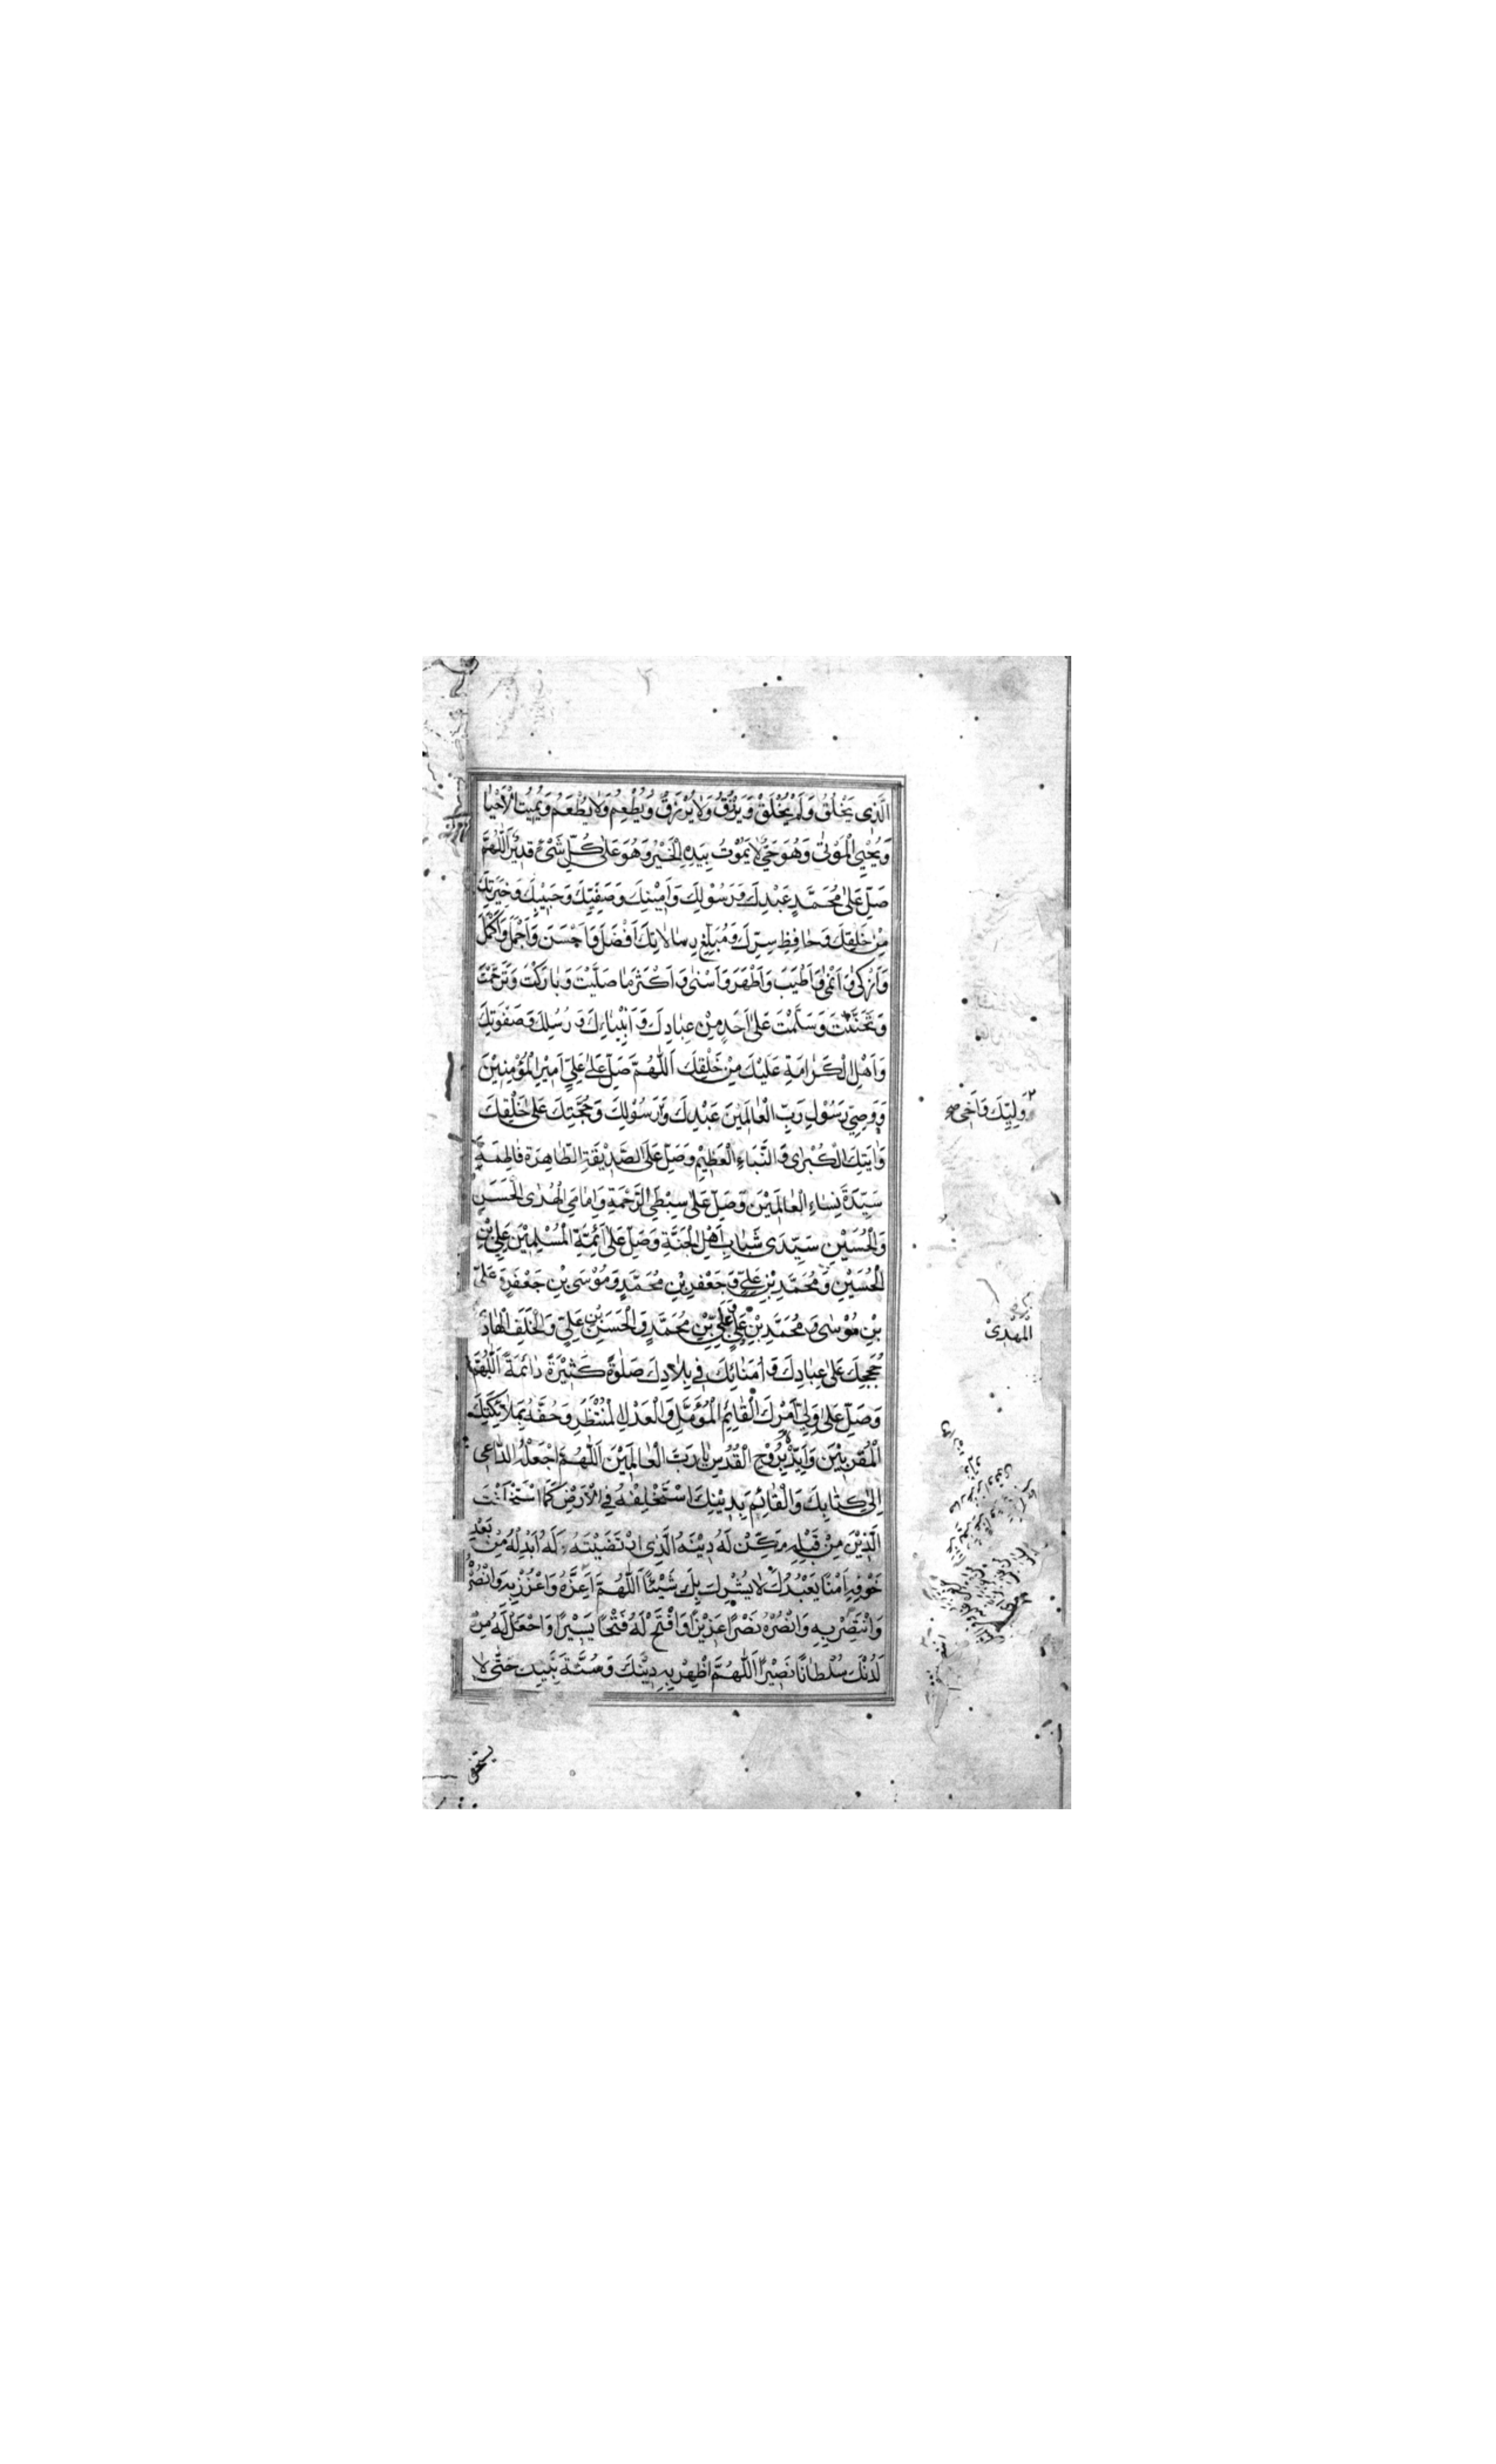 الَّذِى يَخْلُقُ وَلَمْ يُخْلَقْ وَيَرْزُقُ وَلَا يُرْزَقُ وَيُطْعِمُ وَلَا يُطْعَمُ وَيُمِيتُ الْاَحْيَا
وَيُحْيِي الْمَوْتٰى وَهُوَ حَيٌّ لَا يَمُوْتُ بِيَدِهِ الْخَيْرُ وَهُوَ عَلٰى كُلِّ شَىْءٍ قَدِيْرٌ اَللّٰهُمَّ
صَلِّ عَلٰى مُحَمَّدٍ عَبْدِكَ وَرَسُوْلِكَ وَاَمِيْنِكَ وَصَفِيِّكَ وَحَبِيْبِكَ وَخِيَرَتِكَ
مِنْ خَلْقِكَ وَحَافِظِ سِرِّكَ وَمُبَلِّغِ رِسَالَاتِكَ اَفْضَلَ وَاَحْسَنَ وَاَجْمَلَ وَاَكْمَلَ
وَاَزْكٰى وَاَنْمٰى وَاَطْيَبَ وَاَطْهَرَ وَاَسْنٰى وَاَكْثَرَ مَا صَلَّيْتَ وَبَارَكْتَ وَتَرَحَّمْتَ
وَتَحَنَّنْتَ وَسَلَّمْتَ عَلٰى اَحَدٍ مِنْ عِبَادِكَ وَاَنْبِيَائِكَ وَرُسُلِكَ وَصَفْوَتِكَ
وَاَهْلِ الْكَرَامَةِ عَلَيْكَ مِنْ خَلْقِكَ اَللّٰهُمَّ صَلِّ عَلٰى عَلِيٍّ اَمِيْرِ الْمُؤْمِنِيْنَ
وَوَصِيِّ رَسُوْلِ رَبِّ الْعَالَمِيْنَ عَبْدِكَ وَرَسُوْلِكَ وَحُجَّتِكَ عَلٰى خَلْقِكَ
وَلِيِّكَ وَاَخِى
وَاٰيَتِكَ الْكُبْرٰى وَالنَّبَاءِ الْعَظِيْمِ وَصَلِّ عَلَى الصِّدِّيْقَةِ الطَّاهِرَةِ فَاطِمَةَ
سَيِّدَةِ نِسَاءِ الْعَالَمِيْنَ وَصَلِّ عَلٰى سِبْطَيِ الرَّحْمَةِ وَاِمَامَيِ الْهُدٰى الْحَسَنِ
وَالْحُسَيْنِ سَيِّدَى شَبَابِ اَهْلِ الْجَنَّةِ وَصَلِّ عَلٰى اَئِمَّةِ الْمُسْلِمِيْنَ عَلِيِّ بْنِ
الْحُسَيْنِ وَمُحَمَّدِ بْنِ عَلِيٍّ وَجَعْفَرِ بْنِ مُحَمَّدٍ وَمُوْسَى بْنِ جَعْفَرٍ وَعَلِيِّ
بْنِ مُوْسٰى وَمُحَمَّدِ بْنِ عَلِيٍّ وَعَلِيِّ بْنِ مُحَمَّدٍ وَالْحَسَنِ بْنِ عَلِيٍّ وَالْخَلَفِ الْهَادِ
الْمَهْدِيْ
حُجَجِكَ عَلٰى عِبَادِكَ وَاُمَنَائِكَ فِى بِلَادِكَ صَلٰوةً كَثِيْرَةً دَائِمَةً اَللّٰهُمَّ
وَصَلِّ عَلٰى وَلِيِّ اَمْرِكَ الْقَائِمِ الْمُؤَمَّلِ وَالْعَدْلِ الْمُنْتَظَرِ وَحُفَّهُ بِمَلَائِكَتِكَ
الْمُقَرَّبِيْنَ وَاَيِّدْهُ بِرُوْحِ الْقُدُسِ يَا رَبَّ الْعَالَمِيْنَ اَللّٰهُمَّ اجْعَلْهُ الدَّاعِى
اِلٰى كِتَابِكَ وَالْقَائِمَ بِدِيْنِكَ اسْتَخْلِفْهُ فِى الْاَرْضِ كَمَا اسْتَخْلَفْتَ
الَّذِيْنَ مِنْ قَبْلِهِ مَكِّنْ لَهُ دِيْنَهُ الَّذِى ارْتَضَيْتَهُ لَهُ اَبْدِلْهُ مِنْ بَعْدِ
خَوْفِهِ اَمْنًا يَعْبُدُكَ لَا يُشْرِكُ بِكَ شَيْئًا اَللّٰهُمَّ اَعِزَّهُ وَاعْزُزْ بِهِ وَانْصُرْهُ
وَانْتَصِرْ بِهِ وَانْصُرْهُ نَصْرًا عَزِيْزًا وَافْتَحْ لَهُ فَتْحًا يَسِيْرًا وَاجْعَلْ لَهُ مِنْ
لَدُنْكَ سُلْطَانًا نَصِيْرًا اَللّٰهُمَّ اَظْهِرْ بِهِ دِيْنَكَ وَسُنَّةَ نَبِيِّكَ حَتّٰى لَا